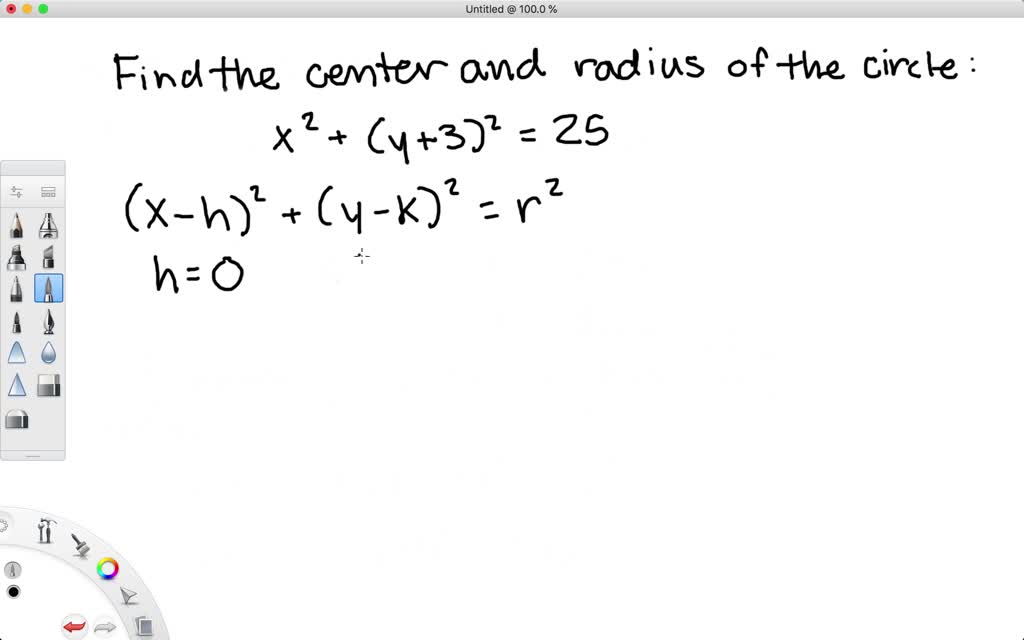 Untitled @ 100.0 %
Find the center and radius of the circle:
x² + (y+3)² = 25
(x-h)² + (y-k)² = r²
h=0